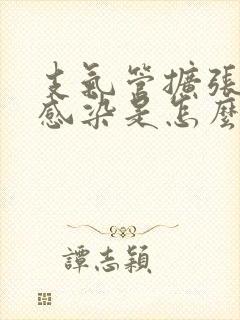 支氣管擴張
感染是怎麼
譚志穎